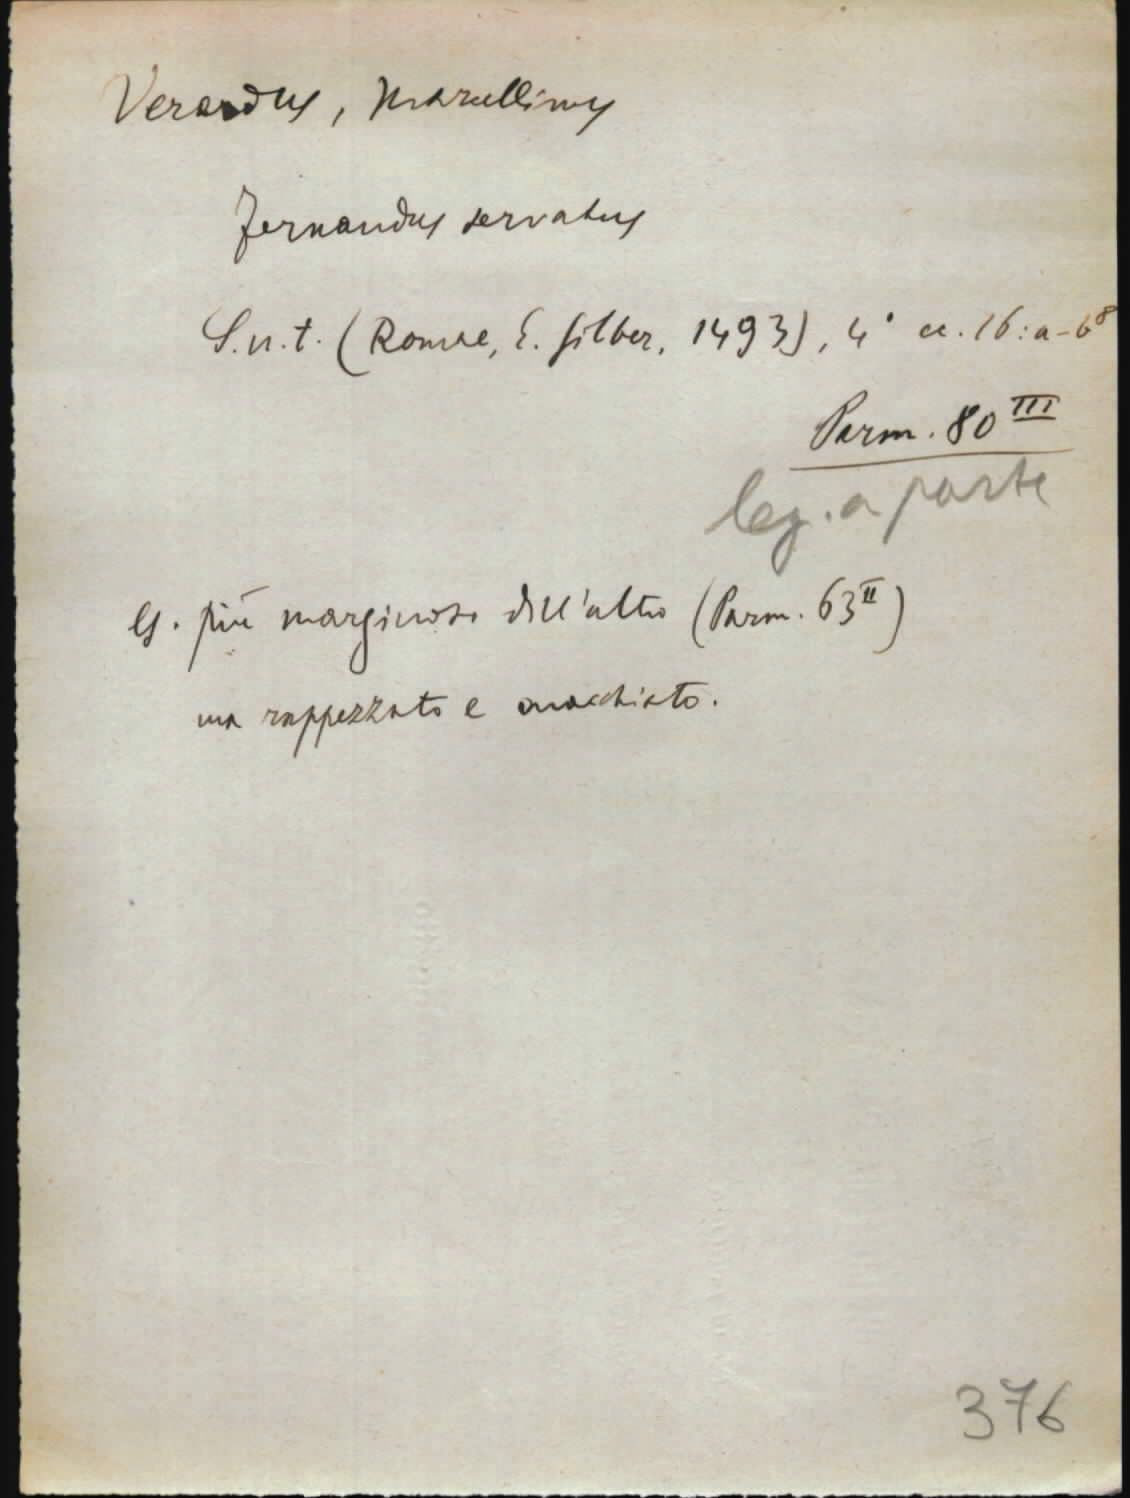 Verardus, Marcellinus
Fernandus servatus
S.n.t. (Romae, E. Silber, 1493), 4° cc. 16: a-b⁸
Parm. 80 III
leg. a parte
Es. più marginoso dell'altro (Parm. 63 II)
ma rappezzato e macchiato.
376